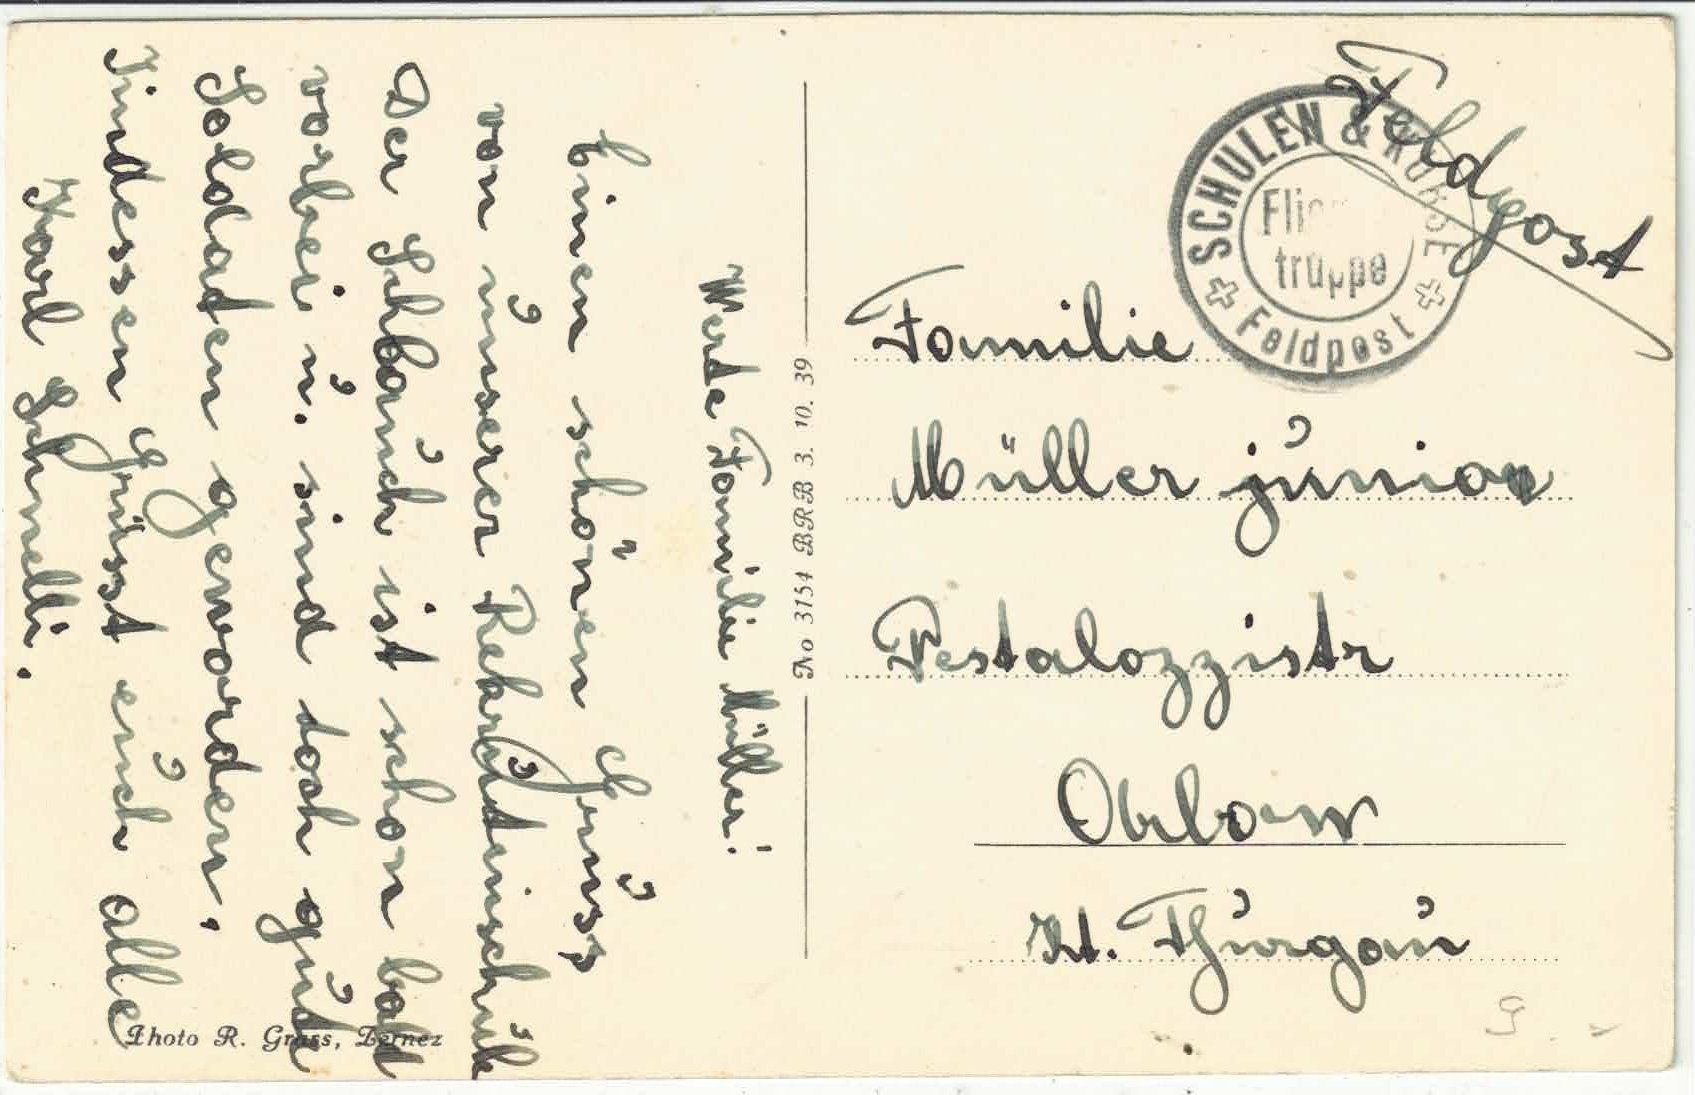 Werte Familie Müller!
Einen schönen Gruss
von unserer Rekrutenschule
Der Schlauch ist schon bald
vorbei u. sind doch gute
Soldaten geworden.
Indessen Grüsst euch alle
Karl Schmelli.
Photo R. Grass, Zernez
No 3154 BRB 3. 10. 39
Feldpost
SCHULEN & KURSE
Flieger
truppe
Feldpost
Familie
Müller junior
Pestalozzistr
Kt. Thurgau